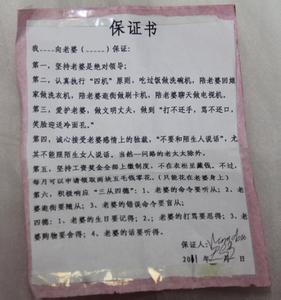 保证书
我____向老婆(_____)保证:
第一、坚持老婆是绝对领导;
第二、认真执行“四机”原则,吃过饭做洗碗机,陪老婆回娘
家做洗衣机,陪老婆逛街做刷卡机,陪老婆聊天做电视机。
第三、爱护老婆,做文明丈夫,做到“打不还手,骂不还口,
笑脸迎送冷面孔。”
第四、诚心接受老婆感情上的独裁,“不要和陌生人说话”,尤
其不能跟陌生女人说话,当然一问路的老太太除外。
第五、坚持工资奖金全部上缴制度,不在衣柜里藏钱,不过,
每月可以申请领取两块五毛钱零花。(只能花在老婆身上)
第六、积极响应“三从四德”:1、老婆的命令要听从;2、老
婆逛街要随从;3、老婆的错误命令要盲从;
四德:1、老婆的生日要记得;2、;老婆的打骂要忍得;3、老
婆购物要舍得;4、老婆的话要听得。
保证人: